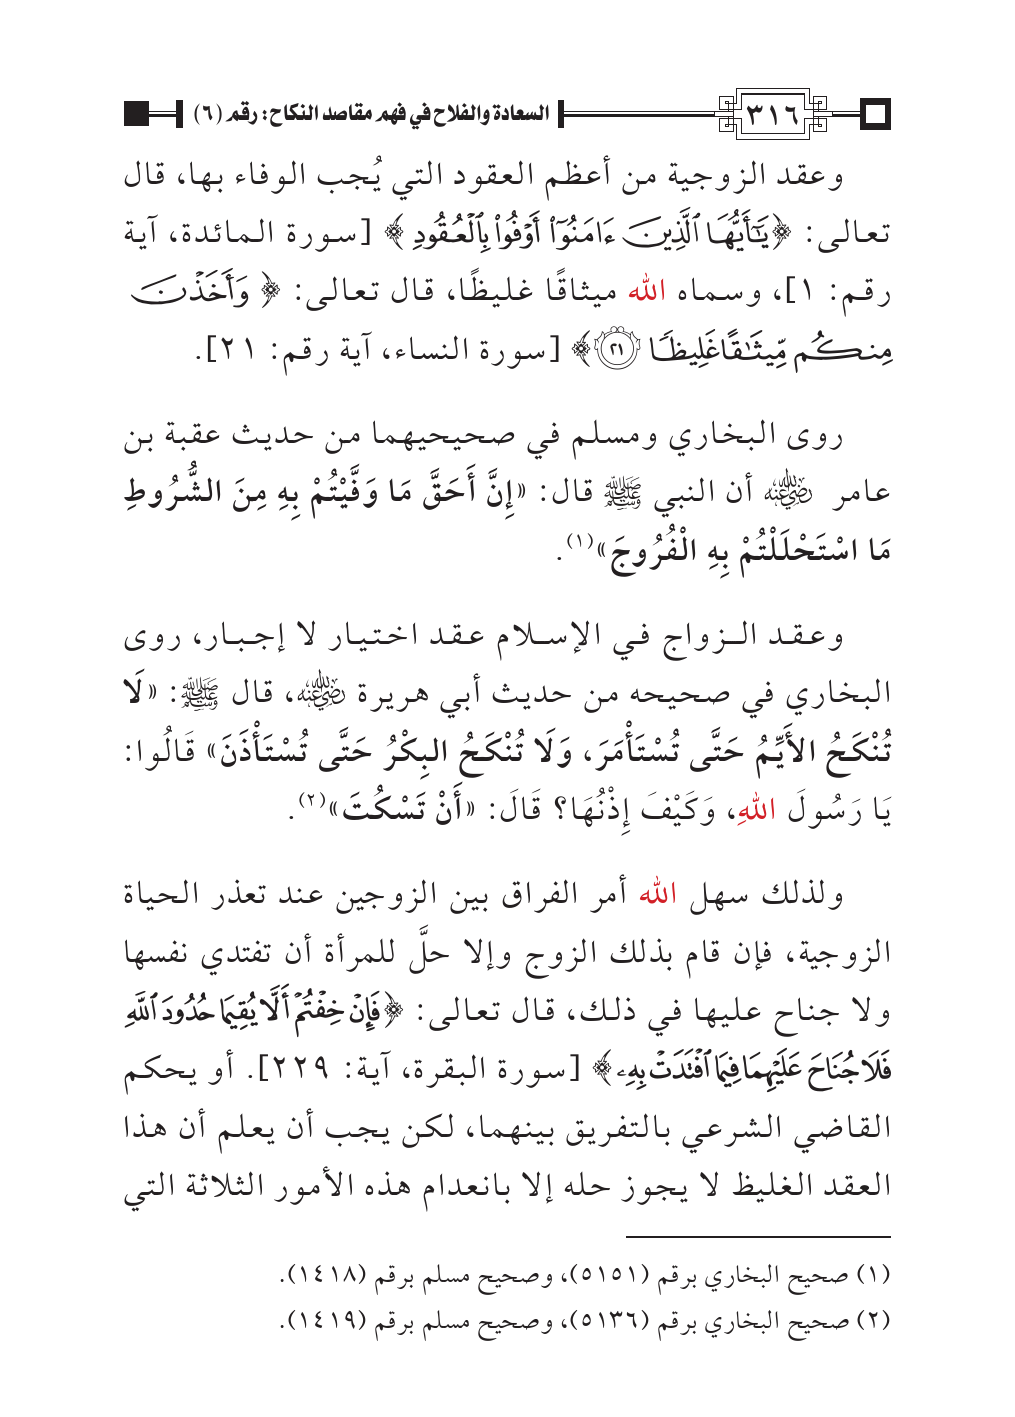 ٣١٦ السعادة والفلاح في فهم مقاصد النكاح: رقم (٦)
وعقد الزوجية من أعظم العقود التي يُجب الوفاء بها، قال
تعالى: ﴿يَٰٓأَيُّهَا ٱلَّذِينَ ءَامَنُوٓاْ أَوۡفُواْ بِٱلۡعُقُودِ﴾ [سورة المائدة، آية
رقم: ١]، وسماه الله ميثاقًا غليظًا، قال تعالى: ﴿وَأَخَذۡنَ
مِنكُم مِّيثَٰقًا غَلِيظٗا ٢١﴾ [سورة النساء، آية رقم: ٢١].
روى البخاري ومسلم في صحيحيهما من حديث عقبة بن
عامر رضي الله عنه أن النبي ﷺ قال: «إِنَّ أَحَقَّ مَا وَفَّيْتُمْ بِهِ مِنَ الشُّرُوطِ
مَا اسْتَحْلَلْتُمْ بِهِ الْفُرُوجَ»(١).
وعقد الزواج في الإسلام عقد اختيار لا إجبار، روى
البخاري في صحيحه من حديث أبي هريرة رضي الله عنه، قال ﷺ: «لَا
تُنْكَحُ الأَيِّمُ حَتَّى تُسْتَأْمَرَ، وَلَا تُنْكَحُ البِكْرُ حَتَّى تُسْتَأْذَنَ» قَالُوا:
يَا رَسُولَ اللهِ، وَكَيْفَ إِذْنُهَا؟ قَالَ: «أَنْ تَسْكُتَ»(٢).
ولذلك سهل الله أمر الفراق بين الزوجين عند تعذر الحياة
الزوجية، فإن قام بذلك الزوج وإلا حلَّ للمرأة أن تفتدي نفسها
ولا جناح عليها في ذلك، قال تعالى: ﴿فَإِنۡ خِفۡتُمۡ أَلَّا يُقِيمَا حُدُودَ ٱللَّهِ
فَلَا جُنَاحَ عَلَيۡهِمَا فِيمَا ٱفۡتَدَتۡ بِهِۦ﴾ [سورة البقرة، آية: ٢٢٩]. أو يحكم
القاضي الشرعي بالتفريق بينهما، لكن يجب أن يعلم أن هذا
العقد الغليظ لا يجوز حله إلا بانعدام هذه الأمور الثلاثة التي
(١) صحيح البخاري برقم (٥١٥١)، وصحيح مسلم برقم (١٤١٨).
(٢) صحيح البخاري برقم (٥١٣٦)، وصحيح مسلم برقم (١٤١٩).